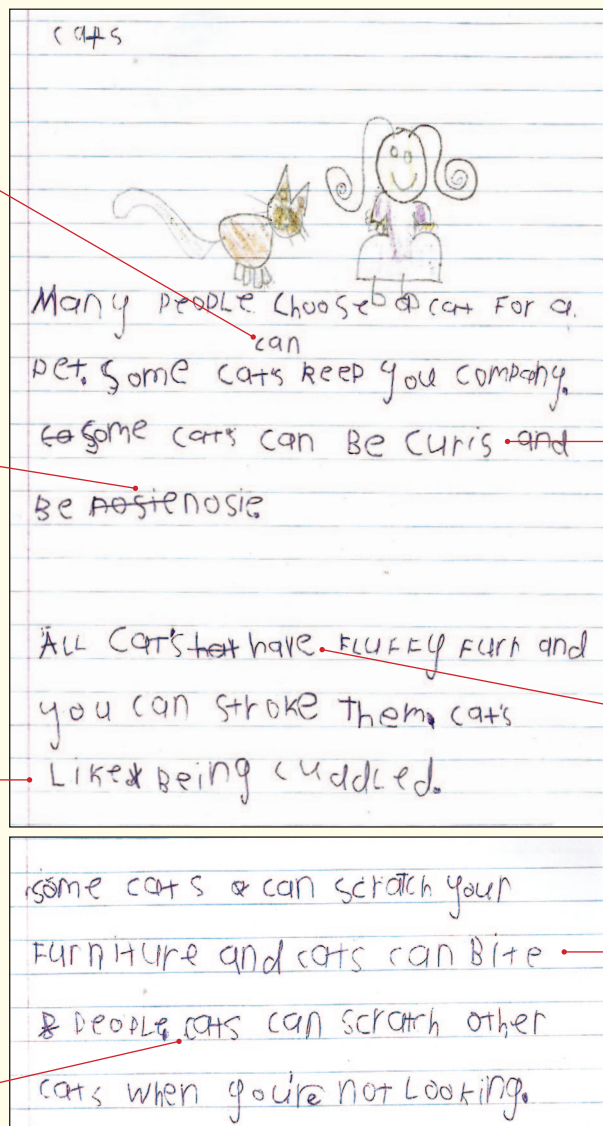 cats
Many people choose a cat for a
can
pet. Some cats keep you company.
some cats can Be curis and
Be nosie nosie.
All cat's hat have fluffy furr and
you can stroke them. cat's
Like Being cuddled.
some cats can scratch your
furniture and cats can Bite
people. cats can scratch other
cats when you're not Looking.